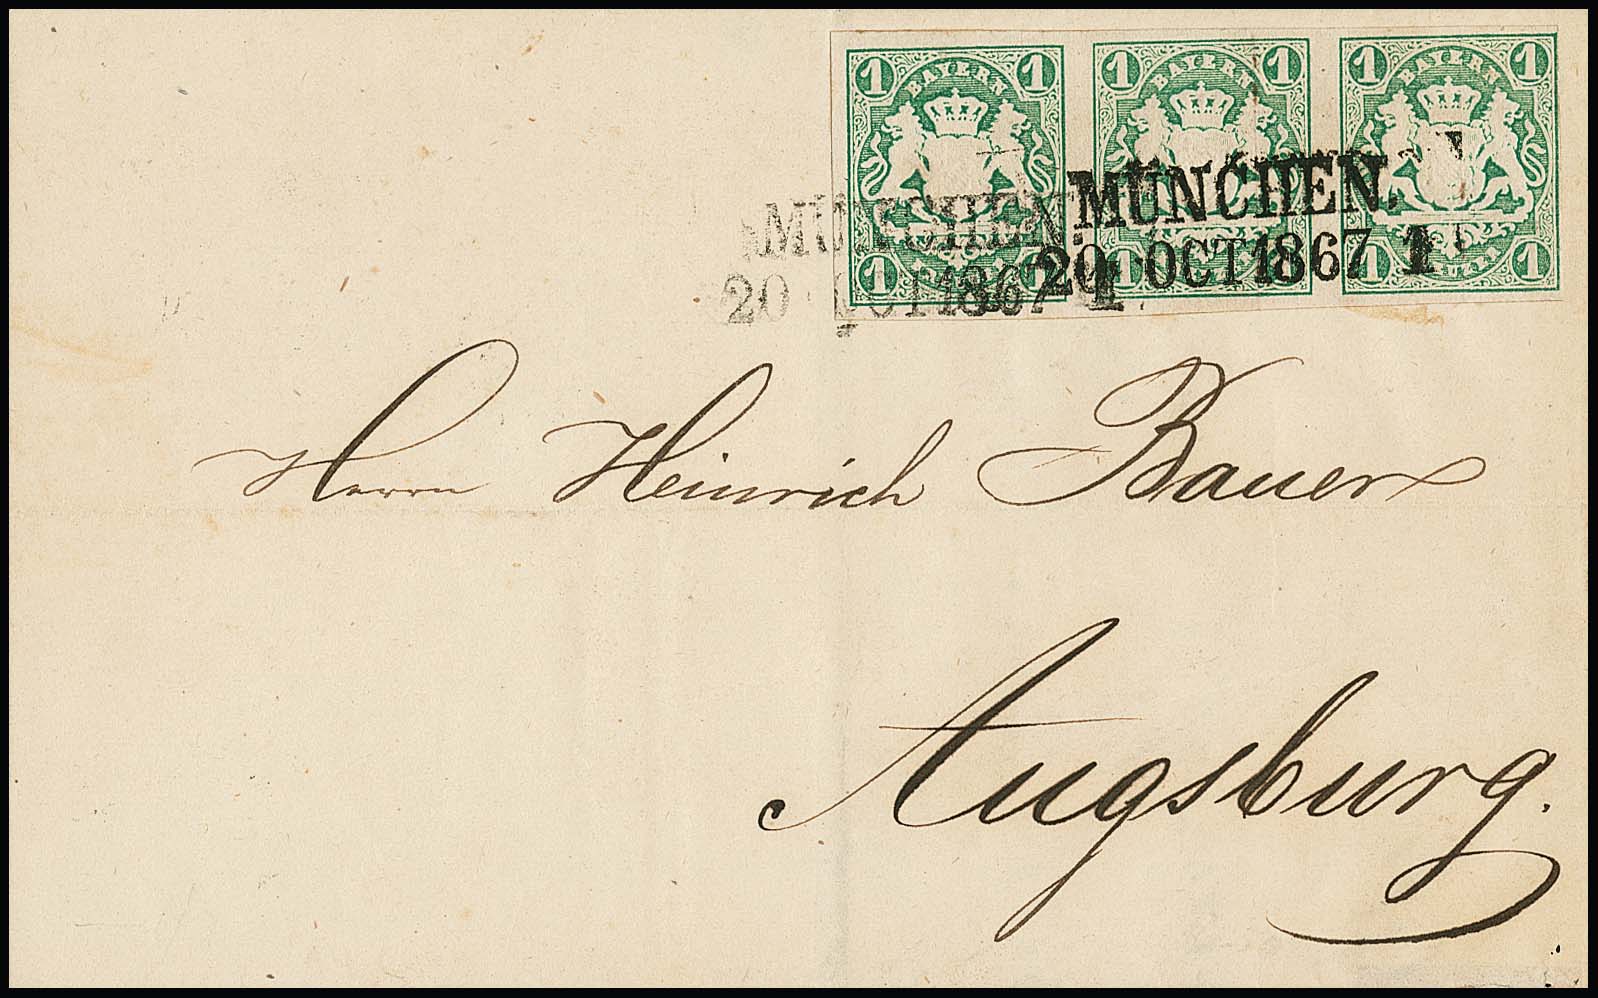 1 1 1 1 1 1
BAYERN BAYERN BAYERN
MÜNCHEN MÜNCHEN.
20 OCT 1867 1 20 OCT 1867 1
1 1 1 1 1
Herrn Heinrich Bauer
Augsburg.